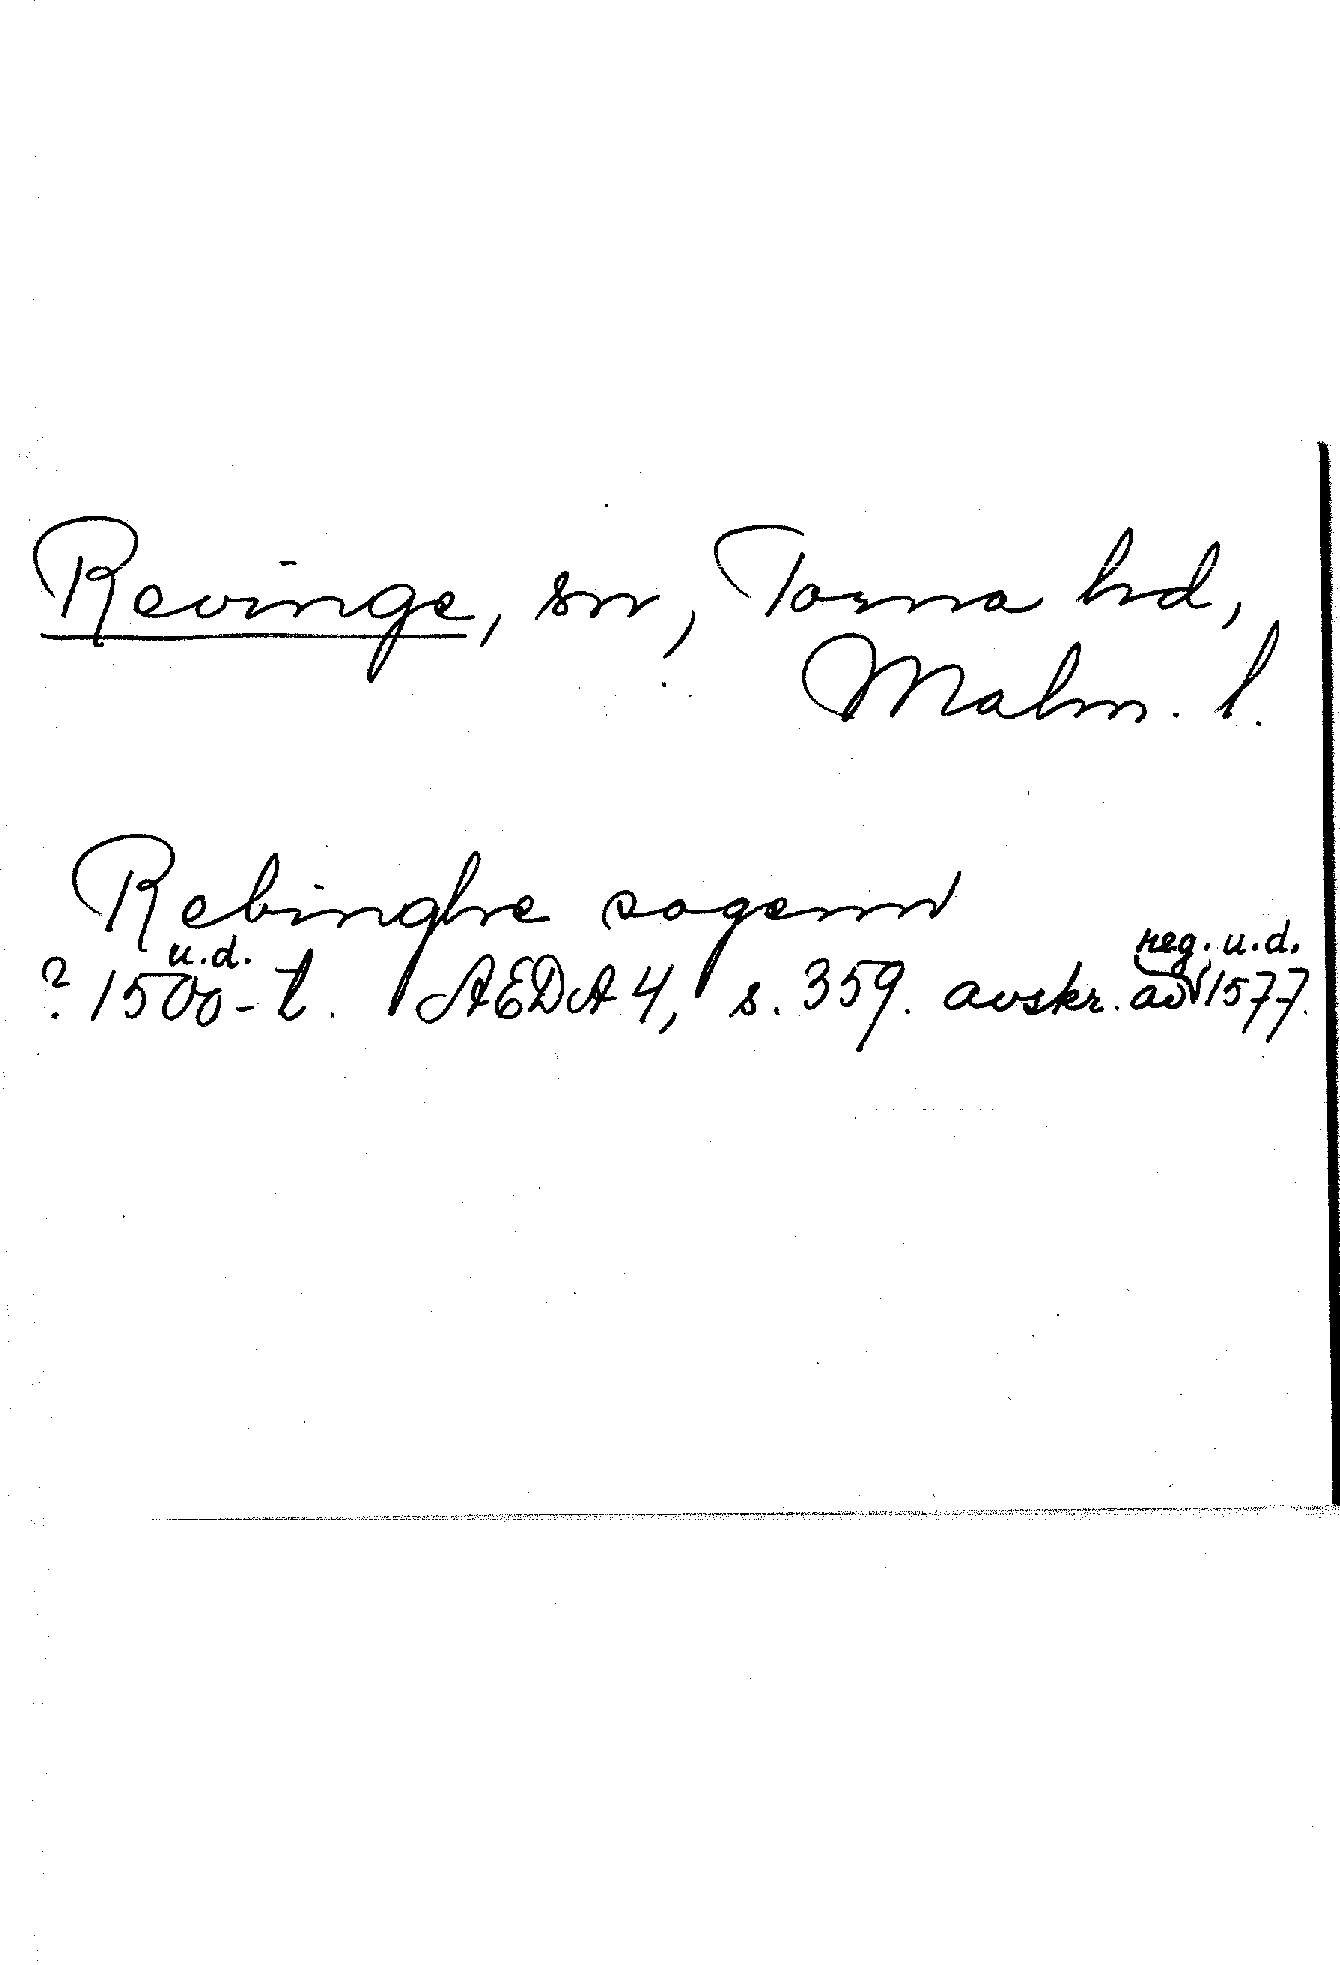 Revinge, sn, Torna hd,
Malm. l.
Rebinghe sogenn
u.d. reg. u.d.
? 1500-t. AEDA 4, s. 359. avskr. av 1577.